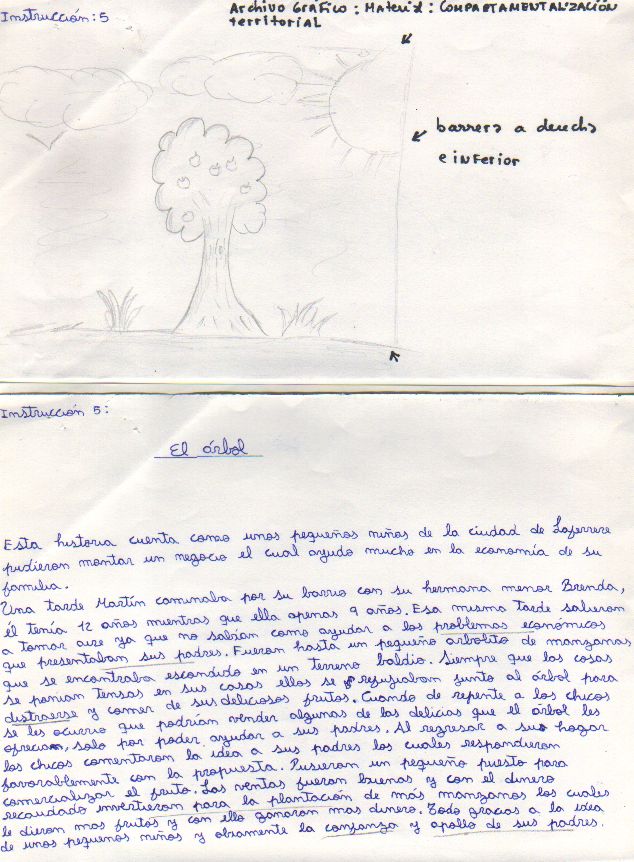 Instrucción: 5
Archivo Gráfico: Material: COMPARTAMENTALIZACIÓN
territorial
barrera a derecha
e inferior
Instrucción 5:
El árbol
Esta historia cuenta como unos pequeños niños de la ciudad de Laferrere
pudieron montar un negocio el cual ayudo mucho en la economía de su
familia.
Una tarde Martín caminaba por su barrio con su hermana menor Brenda,
él tenía 12 años mientras que ella apenas 9 años. Esa misma tarde salieron
a tomar aire ya que no sabían como ayudar a los problemas económicos
que presentaban sus padres. Fueron hasta un pequeño arbolito de manzanas
que se encontraba escondido en un terreno baldio. Siempre que las cosas
se ponian tensas en sus casas ellos se refujiaban junto al árbol para
distraerse y comer de sus deliciosos frutos. Cuando de repente a los chicos
se les ocurrio que podrían vender algunas de las delicias que el árbol les
ofrecian, solo por poder ayudar a sus padres. Al regresar a su hogar
los chicos comentaron la idea a sus padres los cuales respondieron
favorablemente con la propuesta. Pusieron un pequeño puesto para
comercializar el fruto. Las ventas fueron buenas y con el dinero
recaudado invertieron para la plantación de más manzanos los cuales
le dieron mas frutos y con ello ganaron mas dinero. Todo gracias a la idea
de unos pequeños niños y obiamente la confianza y apollo de sus padres.